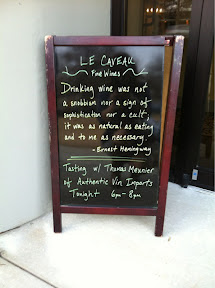 LE CAVEAU
Fine Wines
Drinking wine was not
a snobbism nor a sign of
sophistication nor a cult;
it was as natural as eating
and to me as necessary.
- Ernest Hemingway
Tasting w/ Thomas Meunier
of Authentic Vin Imports
Tonight 6pm - 8pm